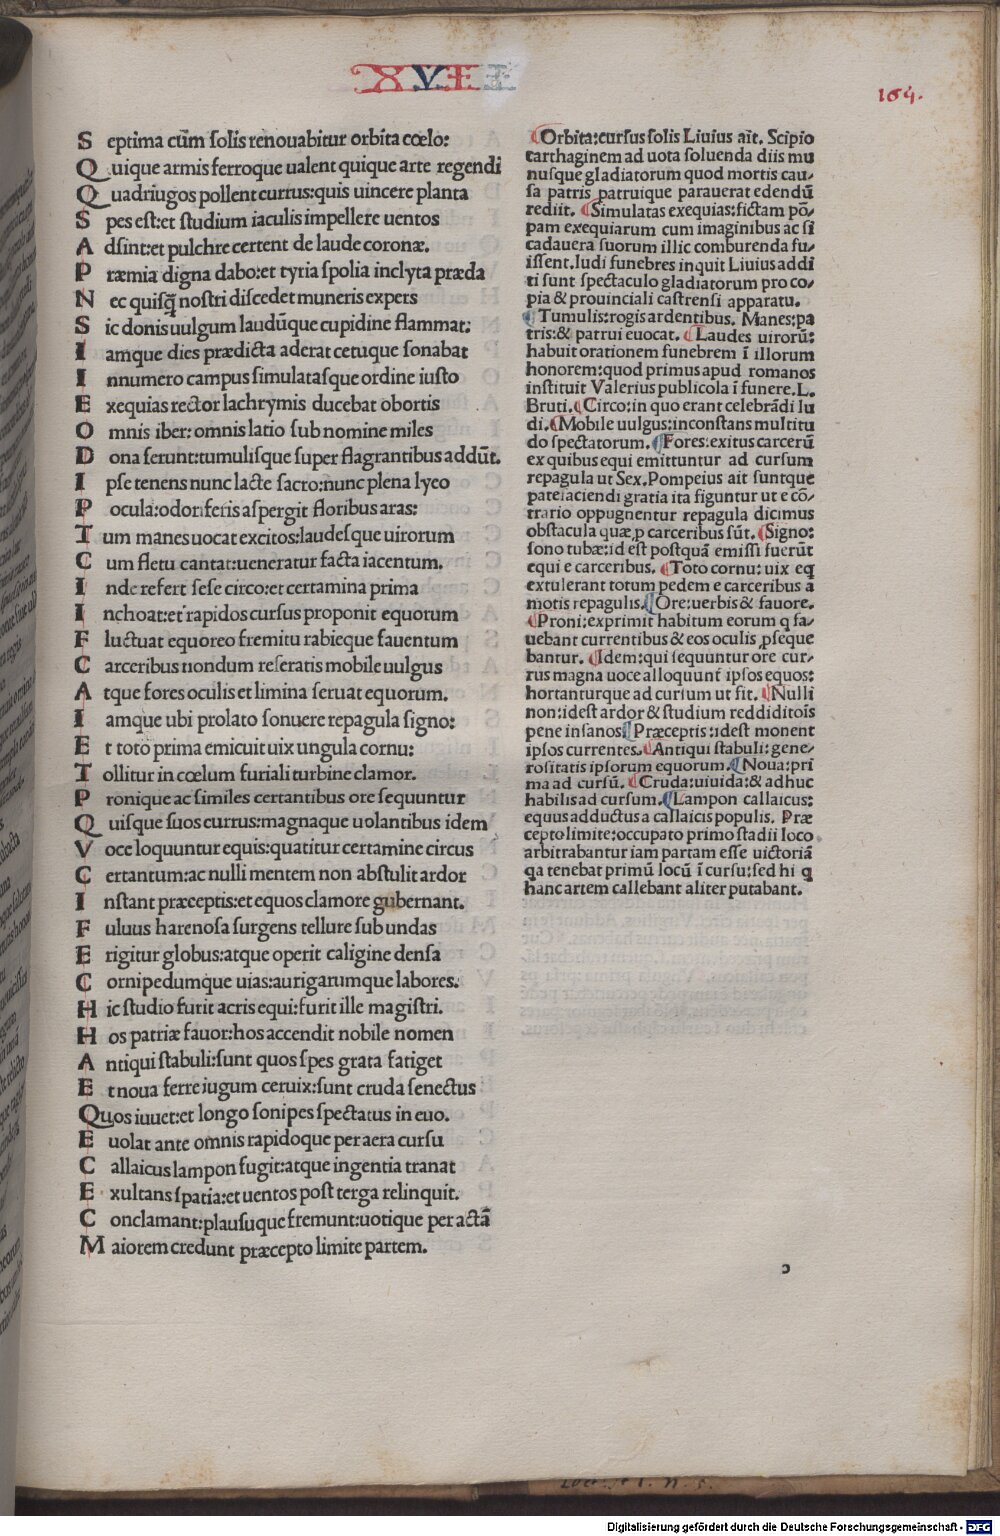 XVII
164.
S eptima cũm ſolis renouabitur orbita cœlo:
Q uique armis ferroque ualent quique arte regendi
Q uadriugos pollent currus:quis uincere planta
S pes eſt:et ſtudium iaculis impellere uentos
A dſint:et pulchre certent de laude coronæ.
P ræmia digna dabo:et tyria ſpolia inclyta præda
N ec quiſq̃ noſtri diſcedet muneris expers
S ic donis uulgum laudũque cupidine flammat:
I amque dies prædicta aderat cetuque ſonabat
I nnumero campus ſimulataſque ordine iuſto
E xequias rector lachrymis ducebat obortis
O mnis iber: omnis latio ſub nomine miles
D ona ferunt:tumuliſque ſuper flagrantibus addũt.
I pſe tenens nunc lacte ſacro:nunc plena lyeo
P ocula:odoriferis aſpergit floribus aras:
T um manes uocat excitos:laudeſque uirorum
C um fletu cantat:ueneratur facta iacentum.
I nde refert ſeſe circo:et certamina prima
I nchoat:et rapidos curſus proponit equorum
F luctuat equoreo fremitu rabieque fauentum
C arceribus nondum reſeratis mobile uulgus
A tque fores oculis et limina ſeruat equorum.
I amque ubi prolato ſonuere repagula ſigno:
E t toto prima emicuit uix ungula cornu:
T ollitur in cœlum furiali turbine clamor.
P ronique ac ſimiles certantibus ore ſequuntur
Q uiſque ſuos currus:magnaque uolantibus idem
V oce loquuntur equis:quatitur certamine circus
C ertantum:ac nulli mentem non abſtulit ardor
I nſtant præceptis:et equos clamore gubernant.
F uluus harenoſa ſurgens tellure ſub undas
E rigitur globus:atque operit caligine denſa
C ornipedumque uias:aurigarumque labores.
H ic ſtudio furit acris equi:furit ille magiſtri.
H os patriæ fauor:hos accendit nobile nomen
A ntiqui ſtabuli:ſunt quos ſpes grata fatiget
E t noua ferre iugum ceruix:ſunt cruda ſenectus
Quos iuuet:et longo ſonipes ſpectatus in euo.
E uolat ante omnis rapidoque per aera curſu
C allaicus lampon fugit:atque ingentia tranat
E xultans ſpatia:et uentos poſt terga relinquit.
C onclamant:plauſuque fremunt:uotique per actã
M aiorem credunt præcepto limite partem.
Orbita:curſus ſolis Liuius aĩt. Scipio
carthaginem ad uota ſoluenda diis mu
nuſque gladiatorum quod mortis cau/
ſa patris patruique parauerat edendũ
rediit. Simulatas exequias:fictam põ/
pam exequiarum cum imaginibus ac ſi
cadauera ſuorum illic comburenda fu/
iſſent.ludi funebres inquit Liuius addi
ti ſunt ſpectaculo gladiatorum pro co/
pia & prouinciali caſtrenſi apparatu.
Tumulis:rogis ardentibus. Manes:pa
tris:& patrui euocat. Laudes uirorũ:
habuit orationem funebrem ĩ illorum
honorem:quod primus apud romanos
inſtituit Valerius publicola ĩ funere.L.
Bruti. Circo:in quo erant celebrãdi lu
di. Mobile uulgus:inconſtans multitu
do ſpectatorum. Fores:exitus carcerũ
ex quibus equi emittuntur ad curſum
repagula ut Sex.Pompeius ait ſuntque
patefaciendi gratia ita figuntur ut e cõ/
trario oppugnentur repagula dicimus
obſtacula quæ ꝓ carceribus ſũt. Signo:
ſono tubæ:id eſt poſtquã emiſſi fuerũt
equi e carceribus. Toto cornu: uix eq
extulerant totum pedem e carceribus a
motis repagulis. Ore:uerbis & fauore.
Proni:exprimit habitum eorum q fa/
uebant currentibus & eos oculis ꝓſeque
bantur. Idem:qui ſequuntur ore cur/
rus magna uoce alloquunt̃ ipſos equos:
hortanturque ad curſum ut fit. Nulli
non:idest ardor & ſtudium reddidit oĩs
pene inſanos. Præceptis:idest monent
ipſos currentes. Antiqui ſtabuli: gene/
roſitatis ipſorum equorum. Noua:pri
ma ad curſũ. Cruda:uiuida:& adhuc
habilis ad curſum. Lampon callaicus:
equus adductus a callaicis populis. Præ
cepto limite:occupato primo ſtadii loco
arbitrabantur iam partam eſſe uictoriã
qa tenebat primũ locũ ĩ curſu:ſed hi q
hanc artem callebant aliter putabant.
Digitalisierung gefördert durch die Deutsche Forschungsgemeinschaft - DFG